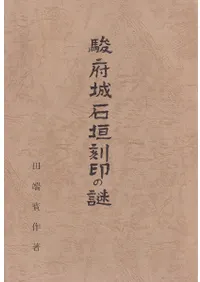 駿府城石垣刻印の謎
田端寶作著